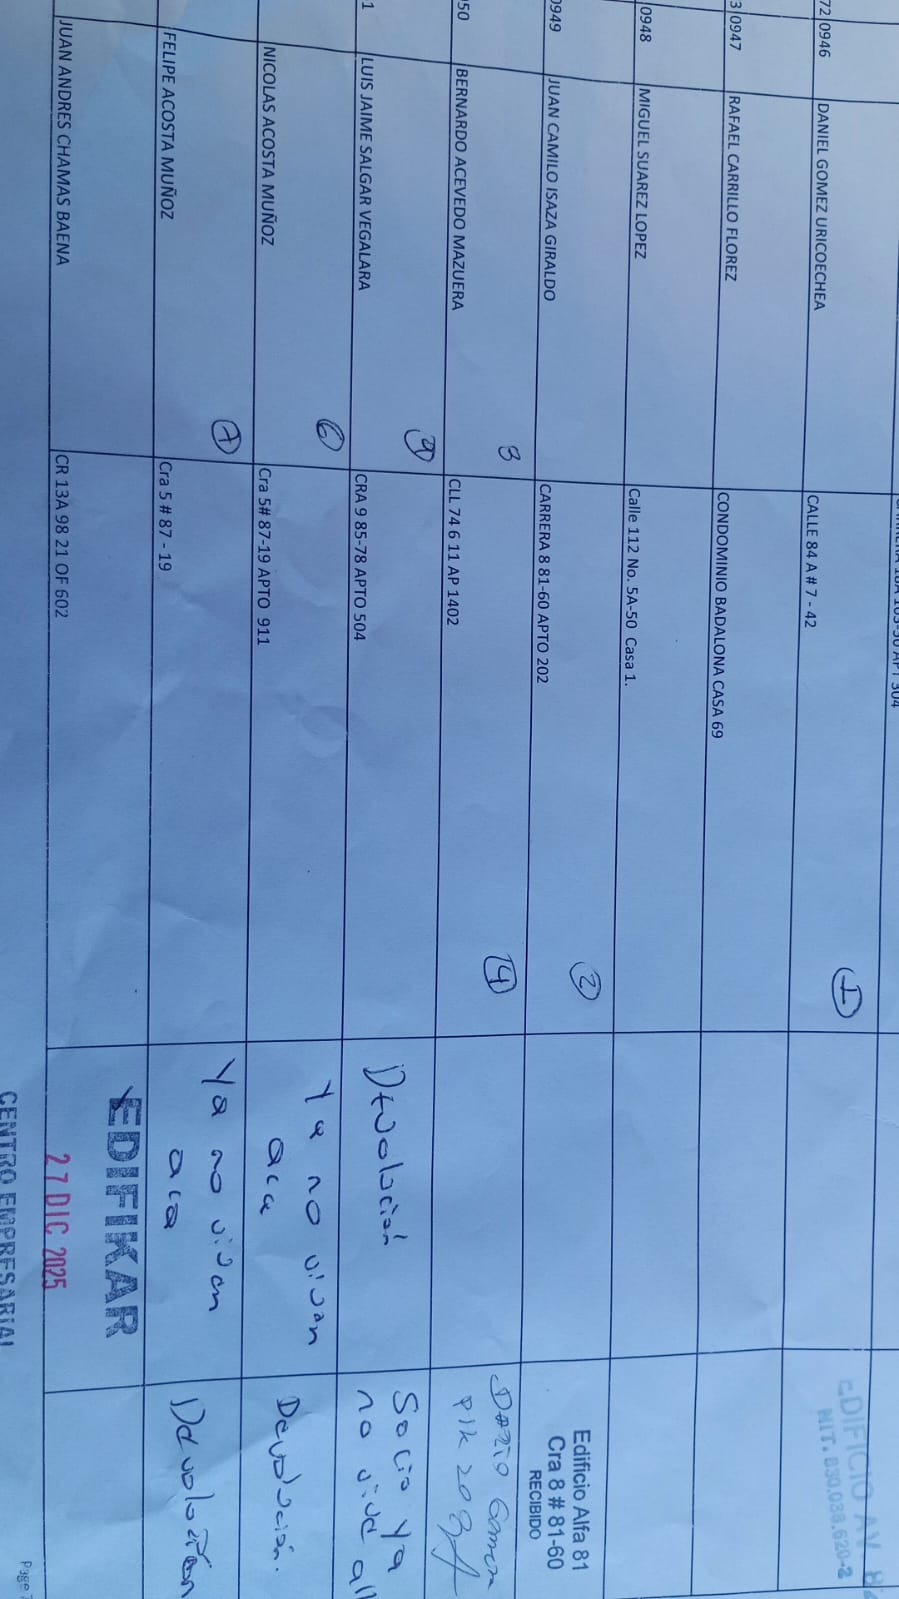 72 0946 DANIEL GOMEZ URICOECHEA CALLE 84 A # 7 - 42 1
EDIFICIO AV 82
NIT. 830.038.620-2
3 0947 RAFAEL CARRILLO FLOREZ CONDOMINIO BADALONA CASA 69
0948 MIGUEL SUAREZ LOPEZ Calle 112 No. 5A-50 Casa 1.
0949 JUAN CAMILO ISAZA GIRALDO CARRERA 8 81-60 APTO 202 2
Edificio Alfa 81
Cra 8 # 81-60
RECIBIDO
950 BERNARDO ACEVEDO MAZUERA 8 CLL 74 6 11 AP 1402 14
1 LUIS JAIME SALGAR VEGALARA 9 CRA 9 85-78 APTO 504
Devolución
Socio ya
no vive all
NICOLAS ACOSTA MUÑOZ 6 Cra 5# 87-19 APTO 911
Ya no vivan
aca
Devolución.
FELIPE ACOSTA MUÑOZ 7 Cra 5 # 87 - 19
Ya no vivan
aca
Devolución
JUAN ANDRES CHAMAS BAENA CR 13A 98 21 OF 602
EDIFIKAR
27 DIC 2025
CENTRO EMPRESARIAL
Page